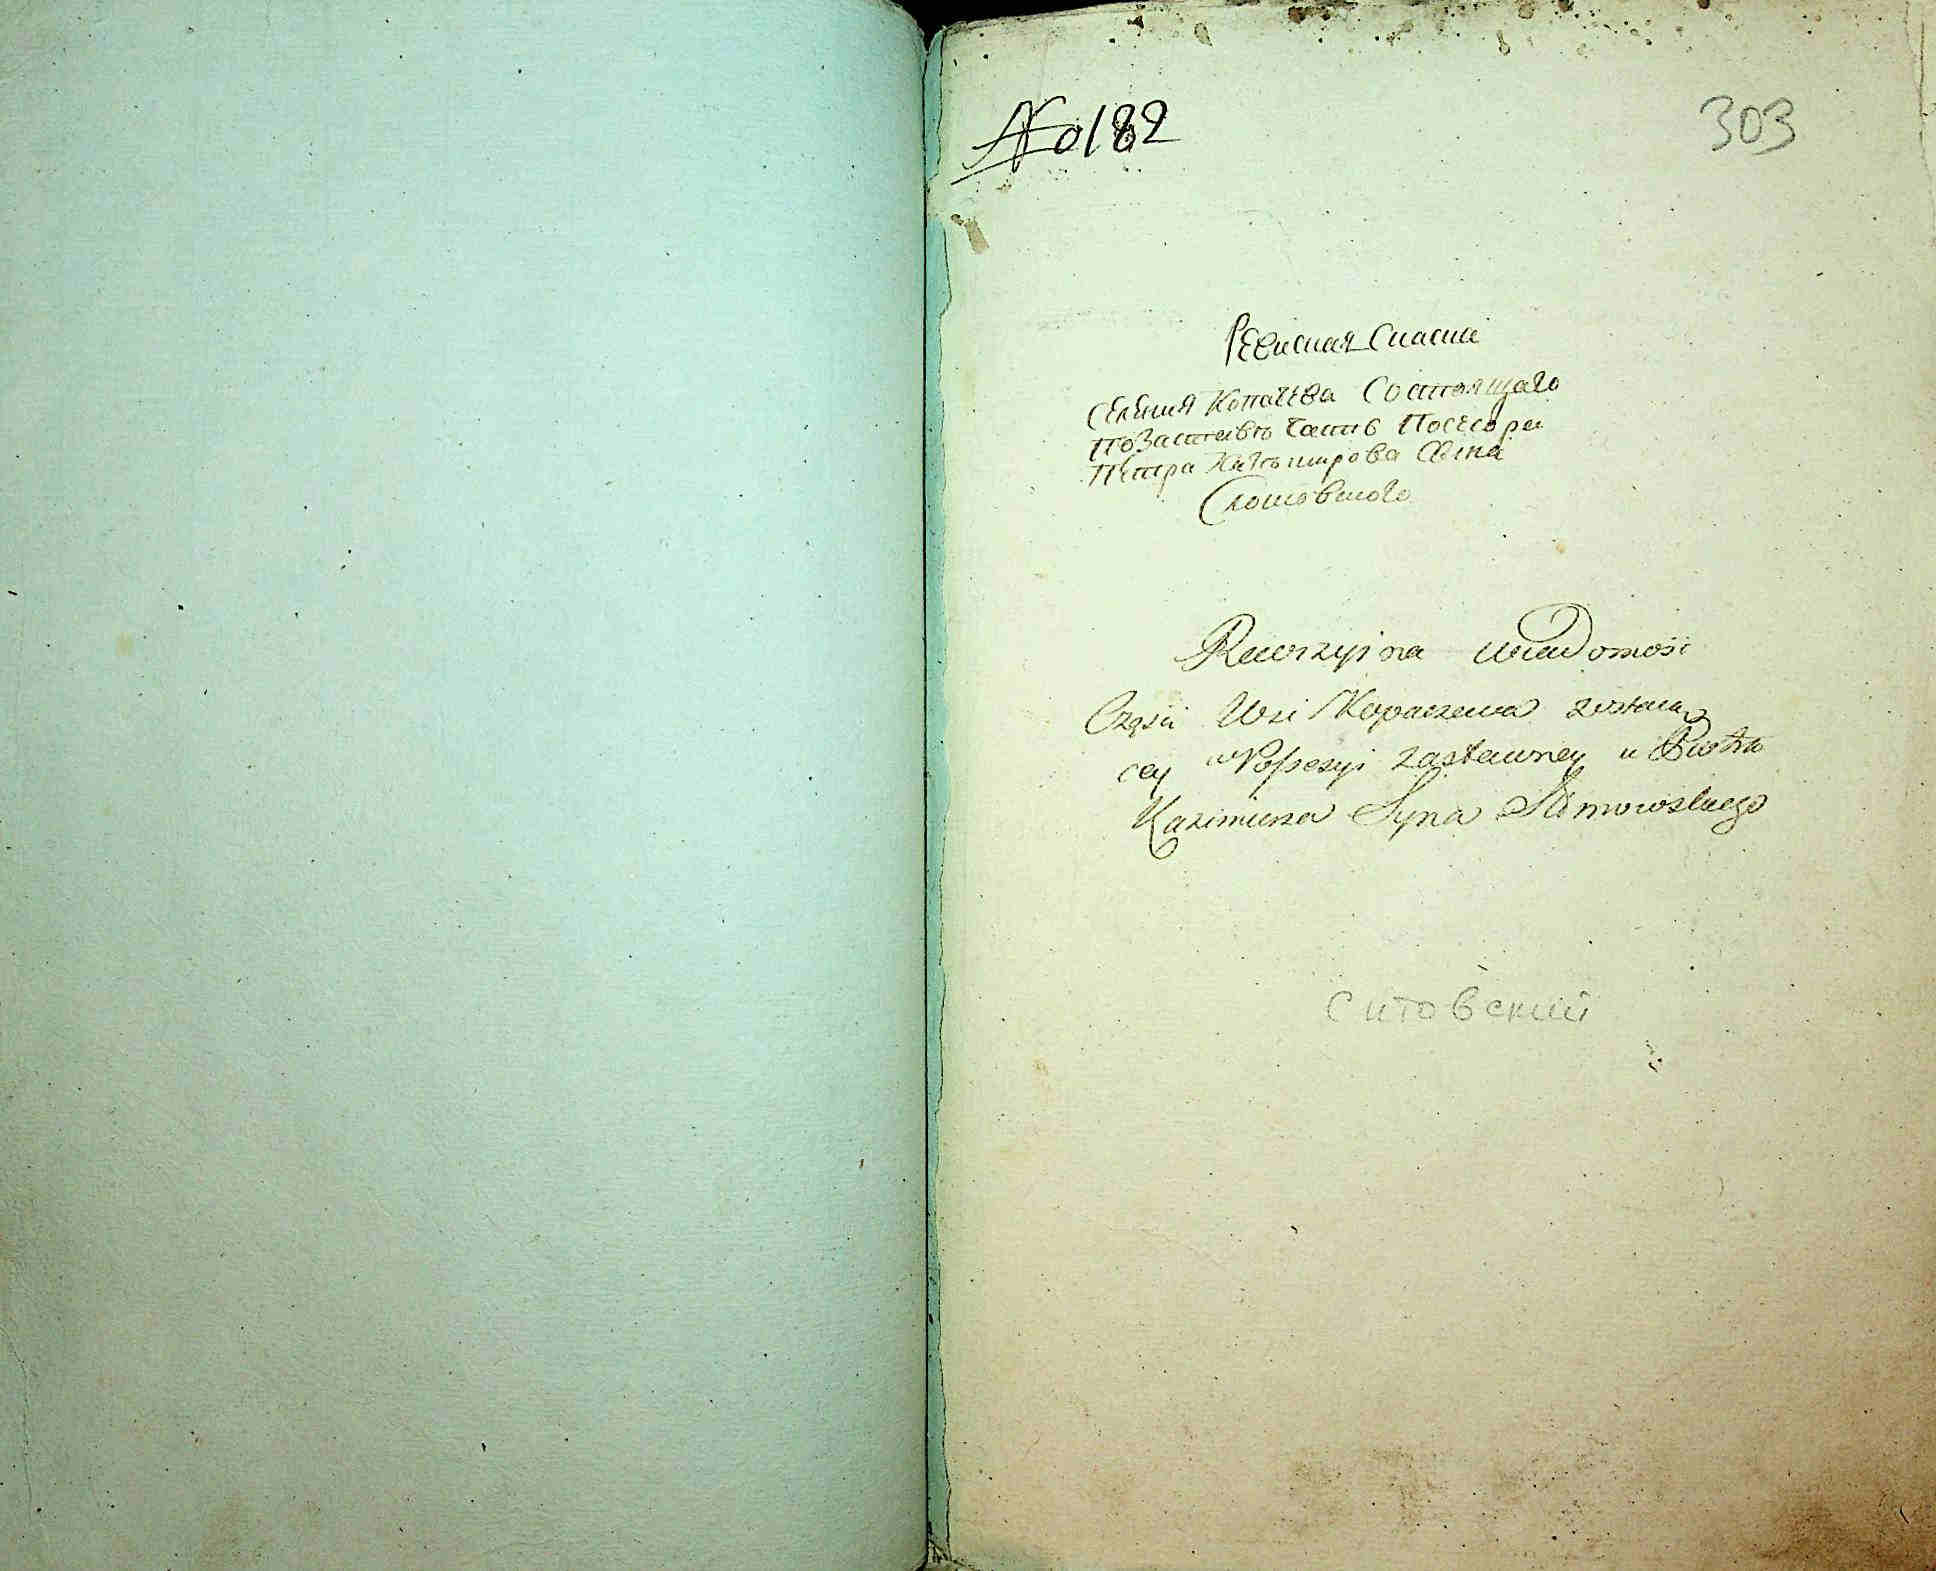 No 182
303
Ревисная Сказка
Селения Копачева Состоящаго
по Заставъ Часть Посесора
Петра Казимирова Сына
Rewizyina wiadomość
Częśći Wsi Kopaczewa zostaią
cey w Possesyi zastawney u Piotra
Kazimierza Syna
Ситовский